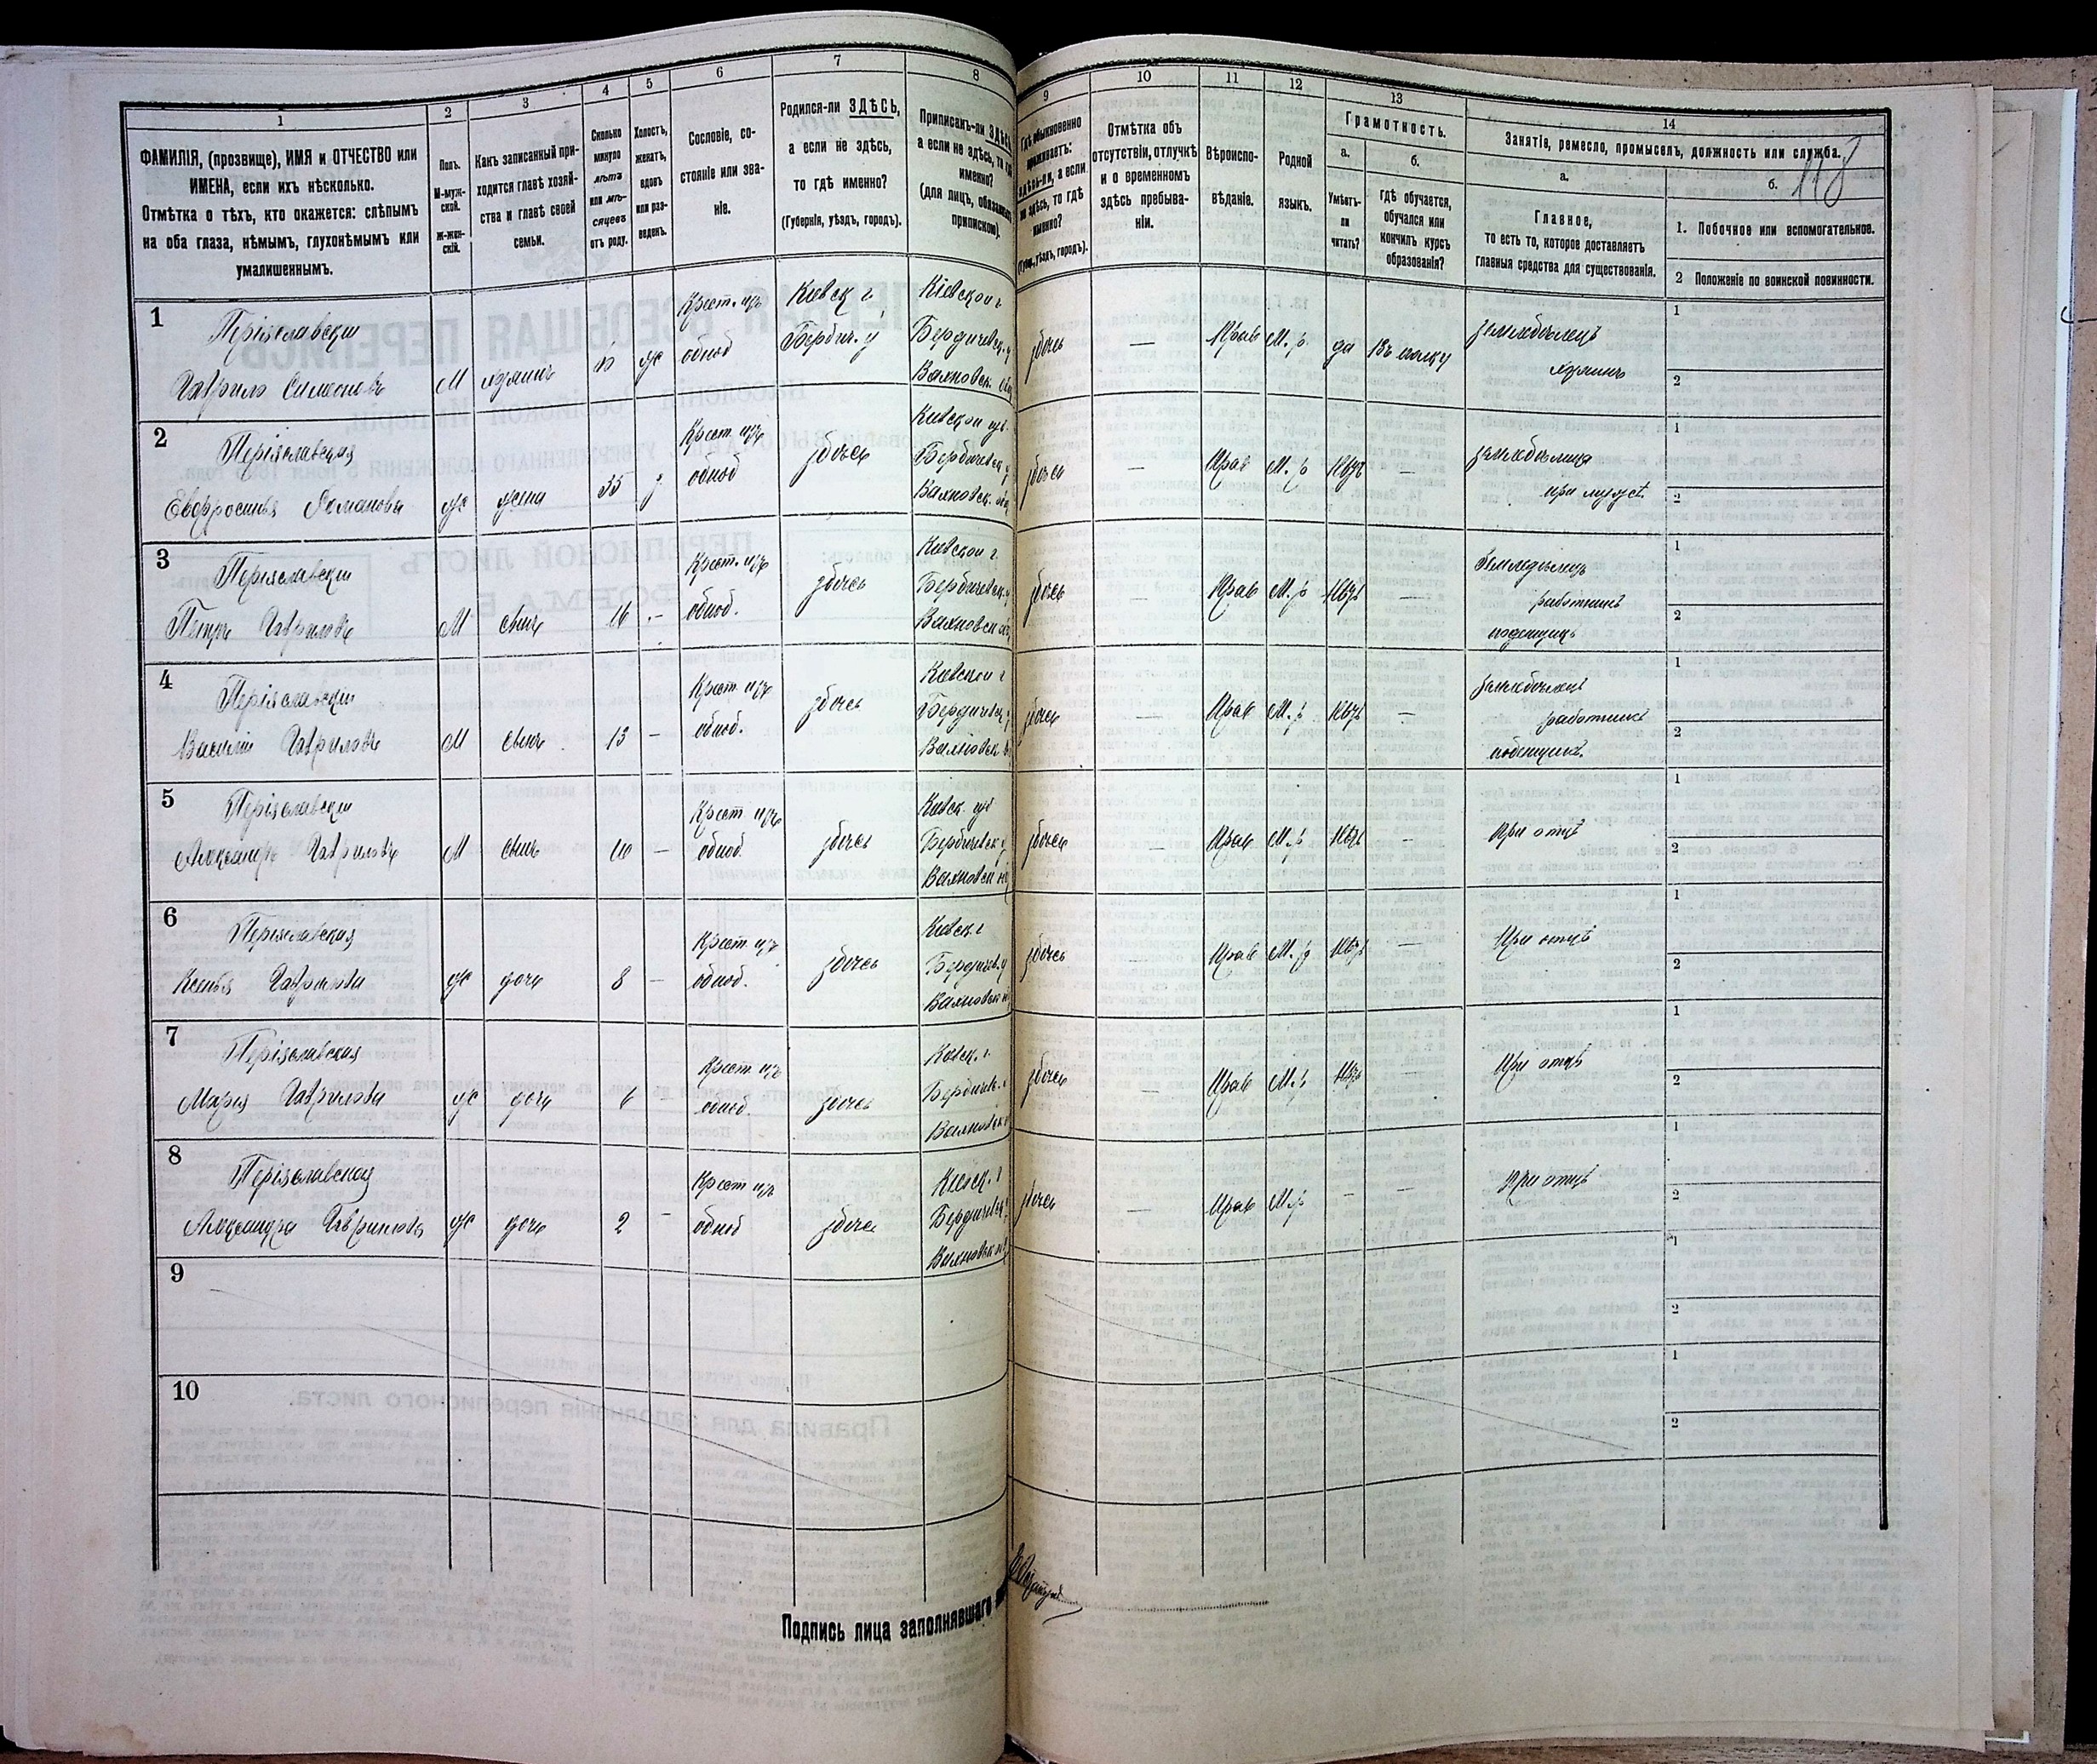 1
ФАМИЛІЯ, (прозвище), ИМЯ и ОТЧЕСТВО или
ИМЕНА, если ихъ нѣсколько.
Отмѣтка о тѣхъ, кто окажется: слѣпымъ
на оба глаза, нѣмымъ, глухонѣмымъ или
умалишеннымъ.
2
Полъ.
М-муж-
ской.
Ж-жен-
скій.
3
Какъ записанный при-
ходится главѣ хозяй-
ства и главѣ своей
семьи.
4
Сколько
минуло
лѣтъ
или мѣ-
сяцевъ
отъ роду.
5
Холостъ,
женатъ,
вдовъ
или раз-
веденъ.
6
Сословіе, со-
стояніе или зва-
ніе.
7
Родился-ли ЗДѢСЬ,
а если не здѣсь,
то гдѣ именно?
(Губернія, уѣздъ, городъ).
8
Приписанъ-ли
а если не здѣсь,
именно?
(для лицъ,
припискою).
9
Гдѣ обыкновенно
проживаетъ:
здѣсь-ли, а если
не здѣсь, то гдѣ
именно?
(Губ., уѣздъ, городъ).
10
Отмѣтка объ
отсутствіи, отлучкѣ
и о временномъ
здѣсь пребыва-
ніи.
11
Вѣроиспо-
вѣданіе.
12
Родной
языкъ.
13
Грамотность.
а.
Умѣетъ-
ли
читать?
б.
гдѣ обучается,
обучался или
кончилъ курсъ
образованія?
14
Занятіе, ремесло, промыселъ, должность или служба.
а.
Главное,
то есть то, которое доставляетъ
главныя средства для существованія.
б.
118
1. Побочное или вспомогательное.
2 Положеніе по воинской повинности.
1
Переяславскій
Гаврило Симеоновъ
М
хозяинъ
ж
Крест. изъ
однод
Кіевск г.
Бердич. у
Кіевской г.
Бердичевск. у
Вахновск.
здѣсь
—
Прав
М. р
да
Въ полку
земледѣлецъ
хозяинъ
1
2
2
Переяславская
Евфросинья Романова
ж
жена
35
з
Крест. изъ
однод
здѣсь
Кіевской губ.
Бердичевск у
Вахновск.
здѣсь
—
Прав
М. р
нѣтъ
—
земледѣлица
при мужѣ
1
2
3
Переяславскій
Петръ Гавриловъ
М
сынъ
16
—
Крест. изъ
однод.
здѣсь
Кіевской г.
Бердичевск. у
Вахновск
здѣсь
—
Прав
М. р
нѣтъ
—
Земледѣлецъ
работникъ
поденщикъ
1
2
4
Переяславскій
Василій Гавриловъ
М
сынъ
13
—
Крест. изъ
однод.
здѣсь
Кіевской г
Бердичевск у
Вахновск
здѣсь
—
Прав
М. р
нѣтъ
—
земледѣлецъ
работникъ
поденщикъ.
1
2
5
Переяславскій
Александръ Гавриловъ
М
сынъ
10
—
Крест изъ
однод.
здѣсь
Кіевск. губ
Бердичевск у
Вахновск
здѣсь
—
Прав
М. р
нѣтъ
—
При отцѣ
1
2
6
Переяславская
Ксенья Гаврилова
ж
дочь
8
—
Крест изъ
однод.
здѣсь
Кіевск. г
Бердичев. у
Вахновск
здѣсь
—
Прав
М. р
нѣтъ
—
При отцѣ
1
2
7
Переяславская
Марія Гаврилова
ж
дочь
6
Крест изъ
однод.
здѣсь
Кіевск. г.
Бердичев.
Вахновск
здѣсь
—
Прав
М. р
нѣтъ
—
При отцѣ
1
2
8
Переяславская
Александра Гаврилова
ж
дочь
2
-
Крест изъ
однод
здѣсь
Кіевск. г
Бердичевск
Вахновск
здѣсь
—
Прав
М. р
—
—
При отцѣ
1
2
9
1
2
10
1
2
Подпись лица заполнявшаго